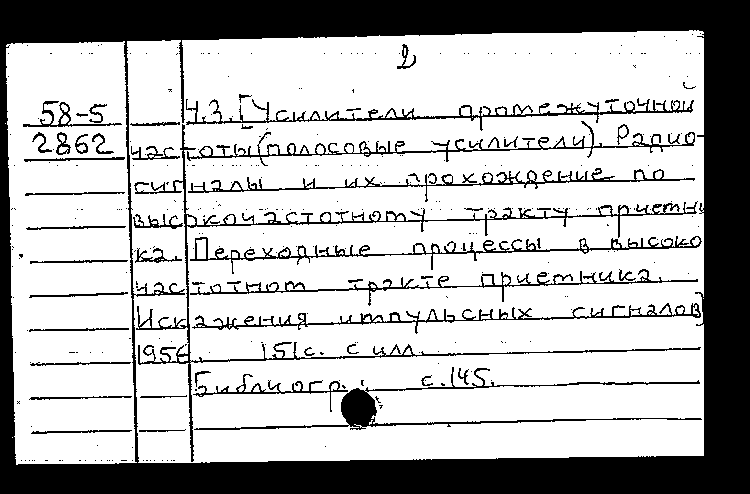 2
58-5 Ч.3. [Усилители промежуточной
2862 частоты (полосовые усилители). Радио-
сигналы и их прохождение по
высокочастотному тракту приемни
ка. Переходные процессы в высоко
частотном тракте приемника.
Искажения импульсных сигналов]
1956. 151с. с илл.
Библиогр.: с.145.